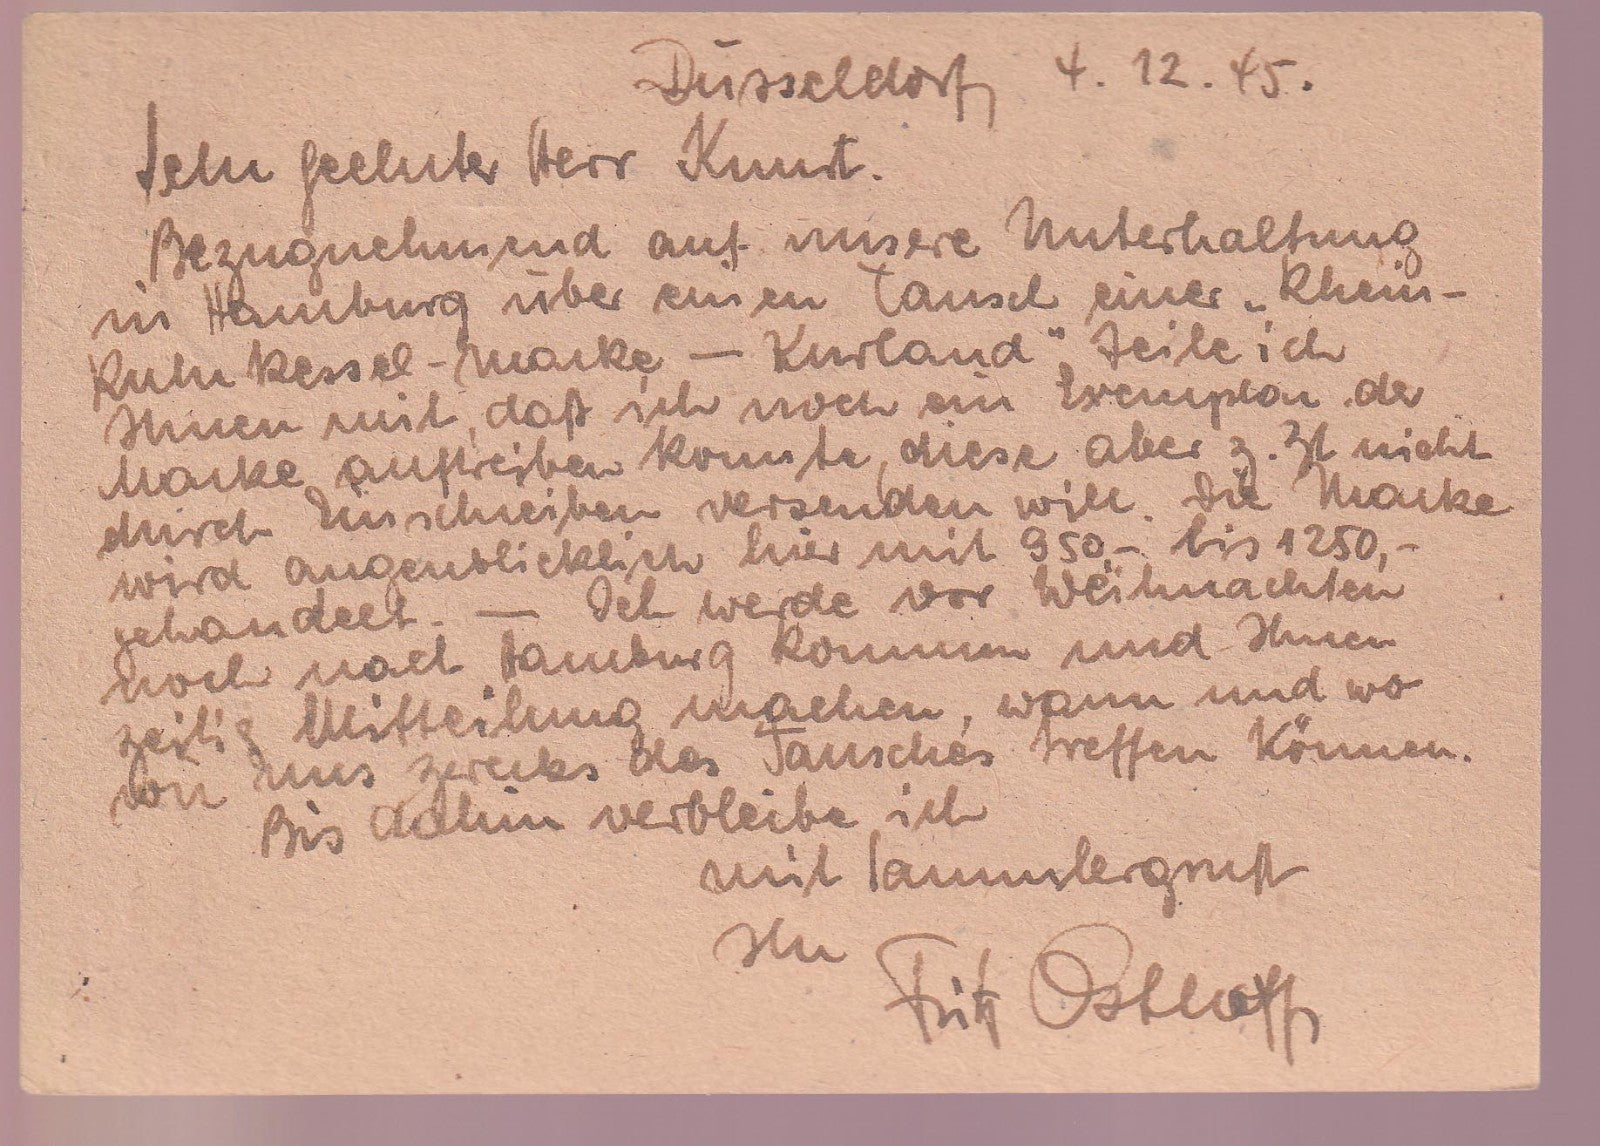 Düsseldorf 4. 12. 45.
Sehr geehrter Herr Kunst.
Bezugnehmend auf unsere Unterhaltung
in Hamburg über einen Tausch einer „Rhein-
Ruhrkessel-Marke — Kurland" teile ich
Ihnen mit, daß ich noch ein Exemplar der
Marke auftreiben konnte, diese aber z. Zt nicht
durch Einschreiben versenden will. Die Marke
wird augenblicklich hier mit 950,- bis 1250,-
gehandelt. — Ich werde vor Weihnachten
noch nach Hamburg kommen und Ihnen
zeitig Mitteilung machen, wann und wo
wir uns zwecks des Tausches treffen können.
Bis dahin verbleibe ich
mit Sammlergruß
Ihr Fritz